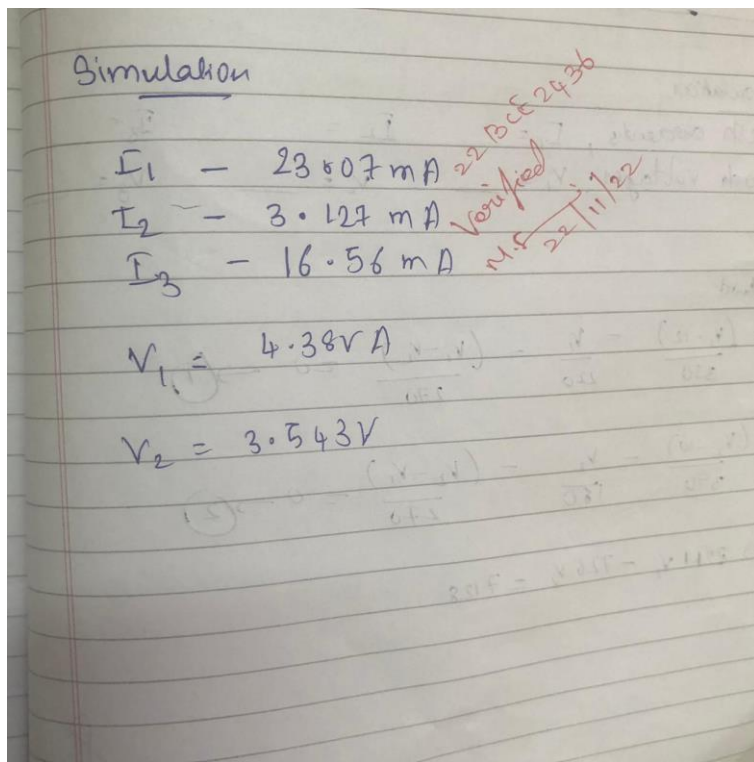 Simulation
I1 - 23.07 mA
I2 - 3.127 mA
I3 - 16.56 mA
V1 = 4.38V A
V2 = 3.543V
22BCE2436
Verified
22/11/22